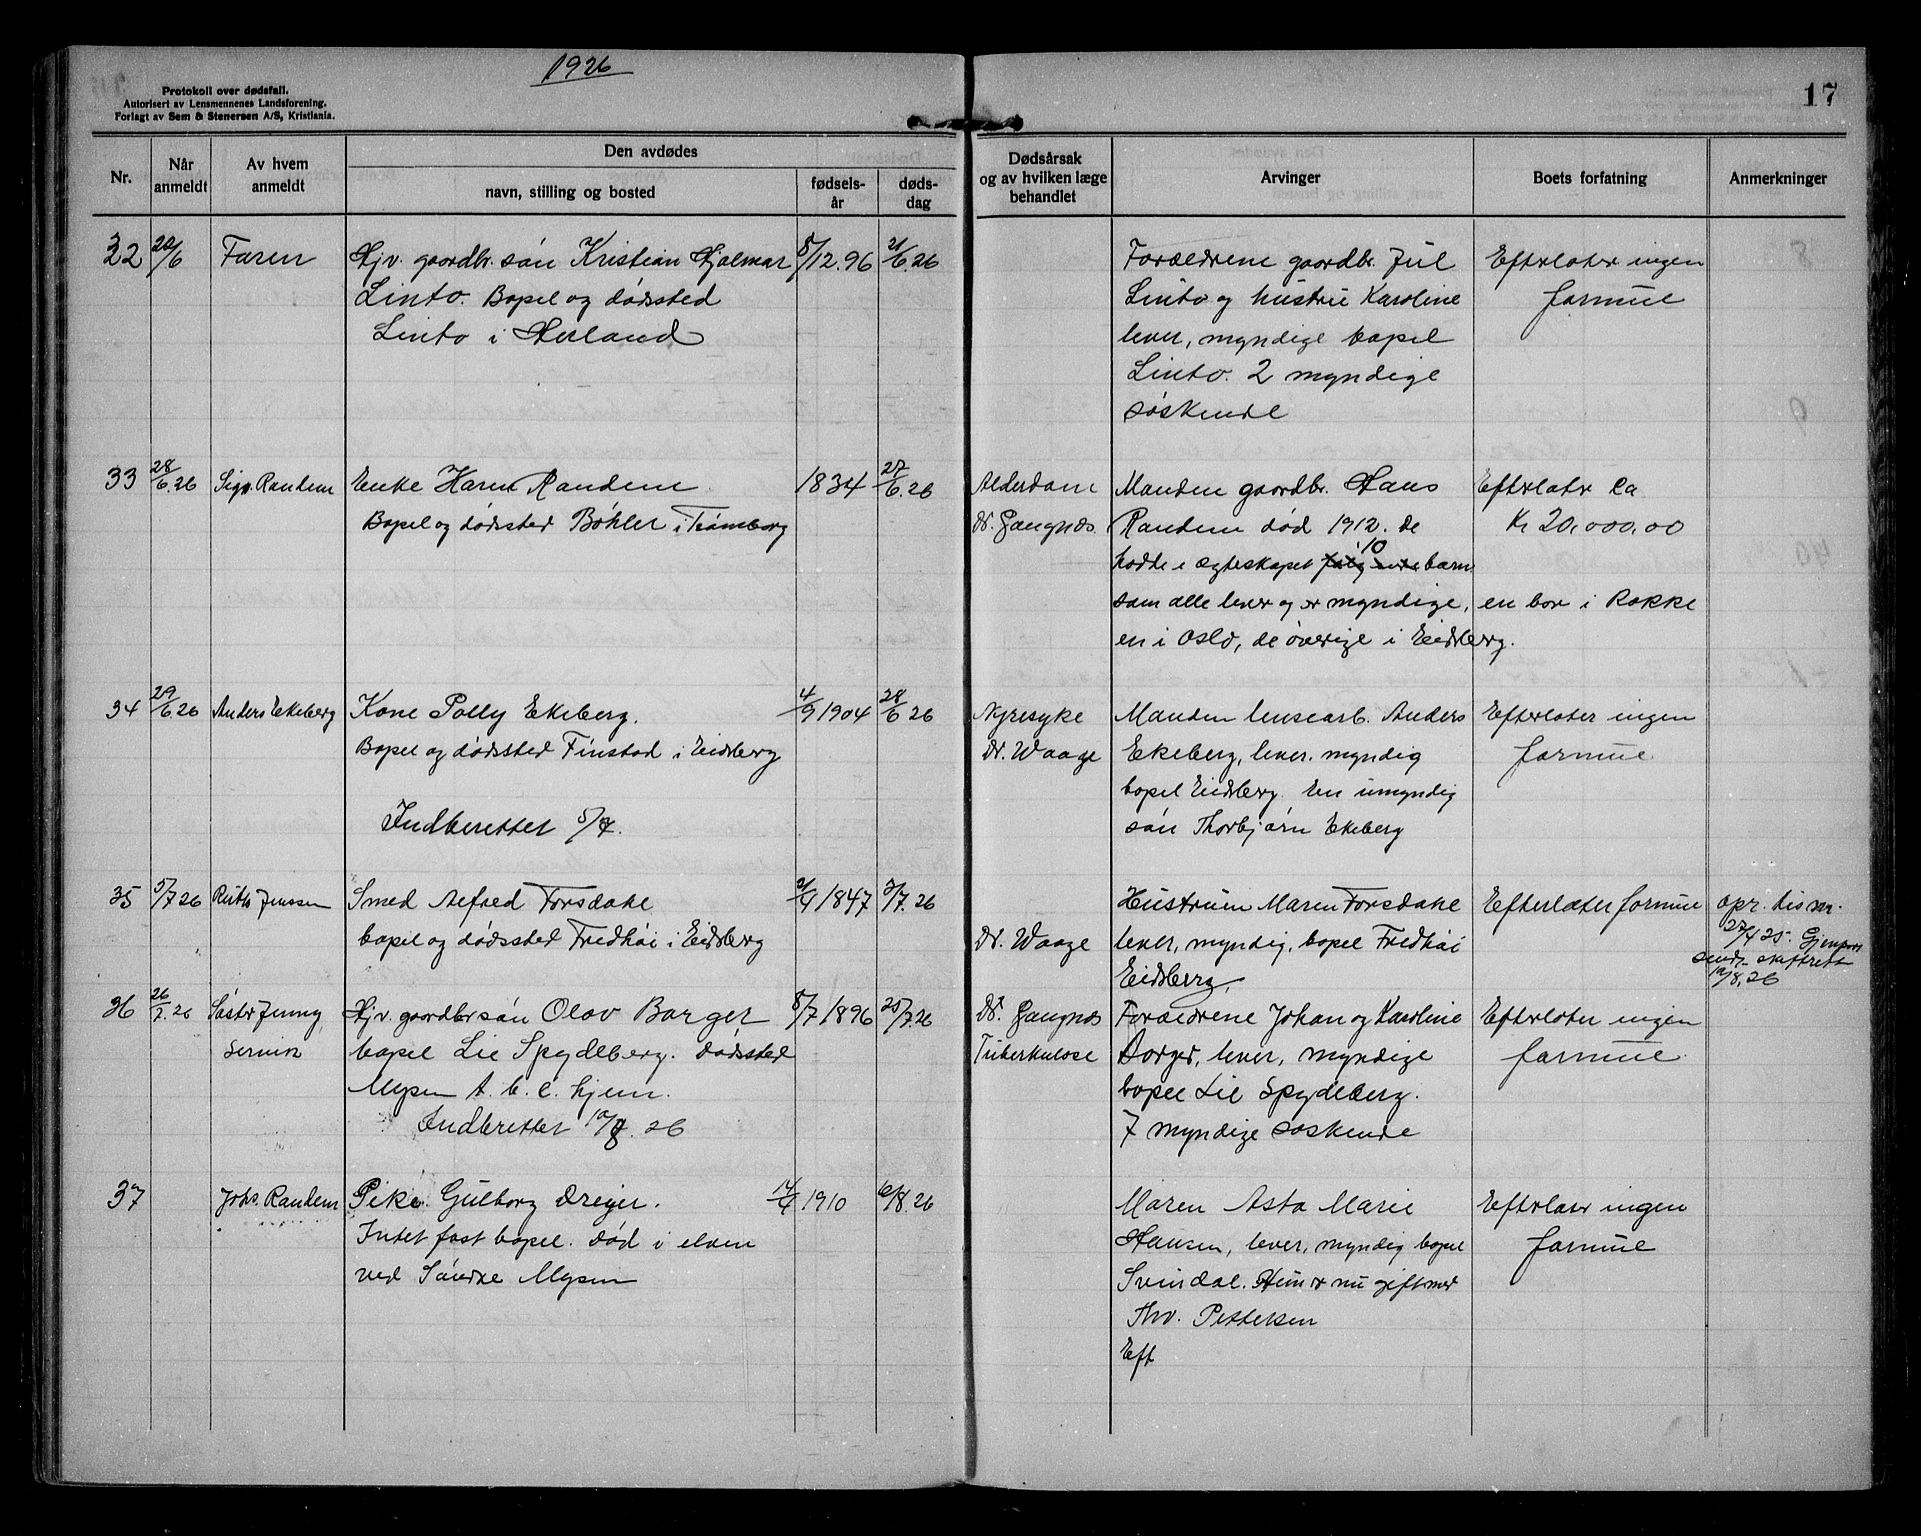 1926
17
Protokoll over dødsfall.
Autorisert av Lensmennenes Landsforening.
Forlagt av Sem & Stenersen A/S, Kristiania.
Nr.
Når anmeldt
Av hvem anmeldt
Den avdødes
navn, stilling og bosted
fødsels-år
døds-dag
Dødsårsak og av hvilken læge behandlet
Arvinger
Boets forfatning
Anmerkninger
32 22/6 Faren Hjv. gaardbr. søn Kristian Hjalmar 8/12.96 21/6.26
Linto. Bopel og dødssted
Linto i Herland
Foreldrene gaardbr. Jul
Linto og hustru Karoline
lever, myndige bopel
Linto. 2 myndige
søskende
Efterlater ingen
formue
33 28/6.26 Sigv. Randem Enke Karen Randem 1834 27/6.26
Bopel og dødssted Bøhler i Trømborg
Alderdom
Dr. Gangnæs
Manden gaardbr. Hans
Randem død 1912. De
hadde i egteskapet 10 barn
som alle lever og er myndige, en bor i Rakke
en i Oslo, de øvrige i Eidsberg.
Efterlater ca
Kr 20.000,00
34 29/6.26 Anders Ekeberg Kone Polly Ekeberg. 4/9 1904 28/6 26
Bopel og dødssted Finstad i Eidsberg
Indberettet 5/7.
Nyresyke
Dr. Waage
Manden lensearb. Anders
Ekeberg, lever. myndig
bopel Eidsberg. En umyndig
søn Thorbjørn Ekeberg
Efterlater ingen
formue.
35 5/7 26 Ruth Jenssen Smed Alfred Torsdake 21/9 1847 3/7.26
bopel og dødssted Fredhøi i Eidsberg
Dr. Waage
Hustruen Maren Torsdake
lever, myndig, bopel Fredhøi
Eidsberg.
Efterlater formue
opr. tism.
27/4 25. Gjenpart
send. skifterett
10/8.26
36 26/7.26 Søster Jenny Hjv. gaardbr søn Olav Borger 8/7 1896 25/7.26
bopel Lie Spydeberg. Dødssted
Mysen t. b. c. hjem.
Indberettet 10/8. 26
Dr. Gangnæs
Tuberkulose
Foreldrene Johan og Karoline
Borger, lever, myndige
bopel Lie Spydeberg.
7 myndige søskende
Efterlater ingen
formue.
37 Johs. Randem Pike Gulborg Dreyer. 1910 6/8 26
Intet fast bopel. død i elven
ved Søndre Mysen
Moren Asta Marie
Hansen, lever, myndig bopel
Svindal. Hun er nu gift med
Thv. Pettersen
Eft
Efterlater ingen
formue